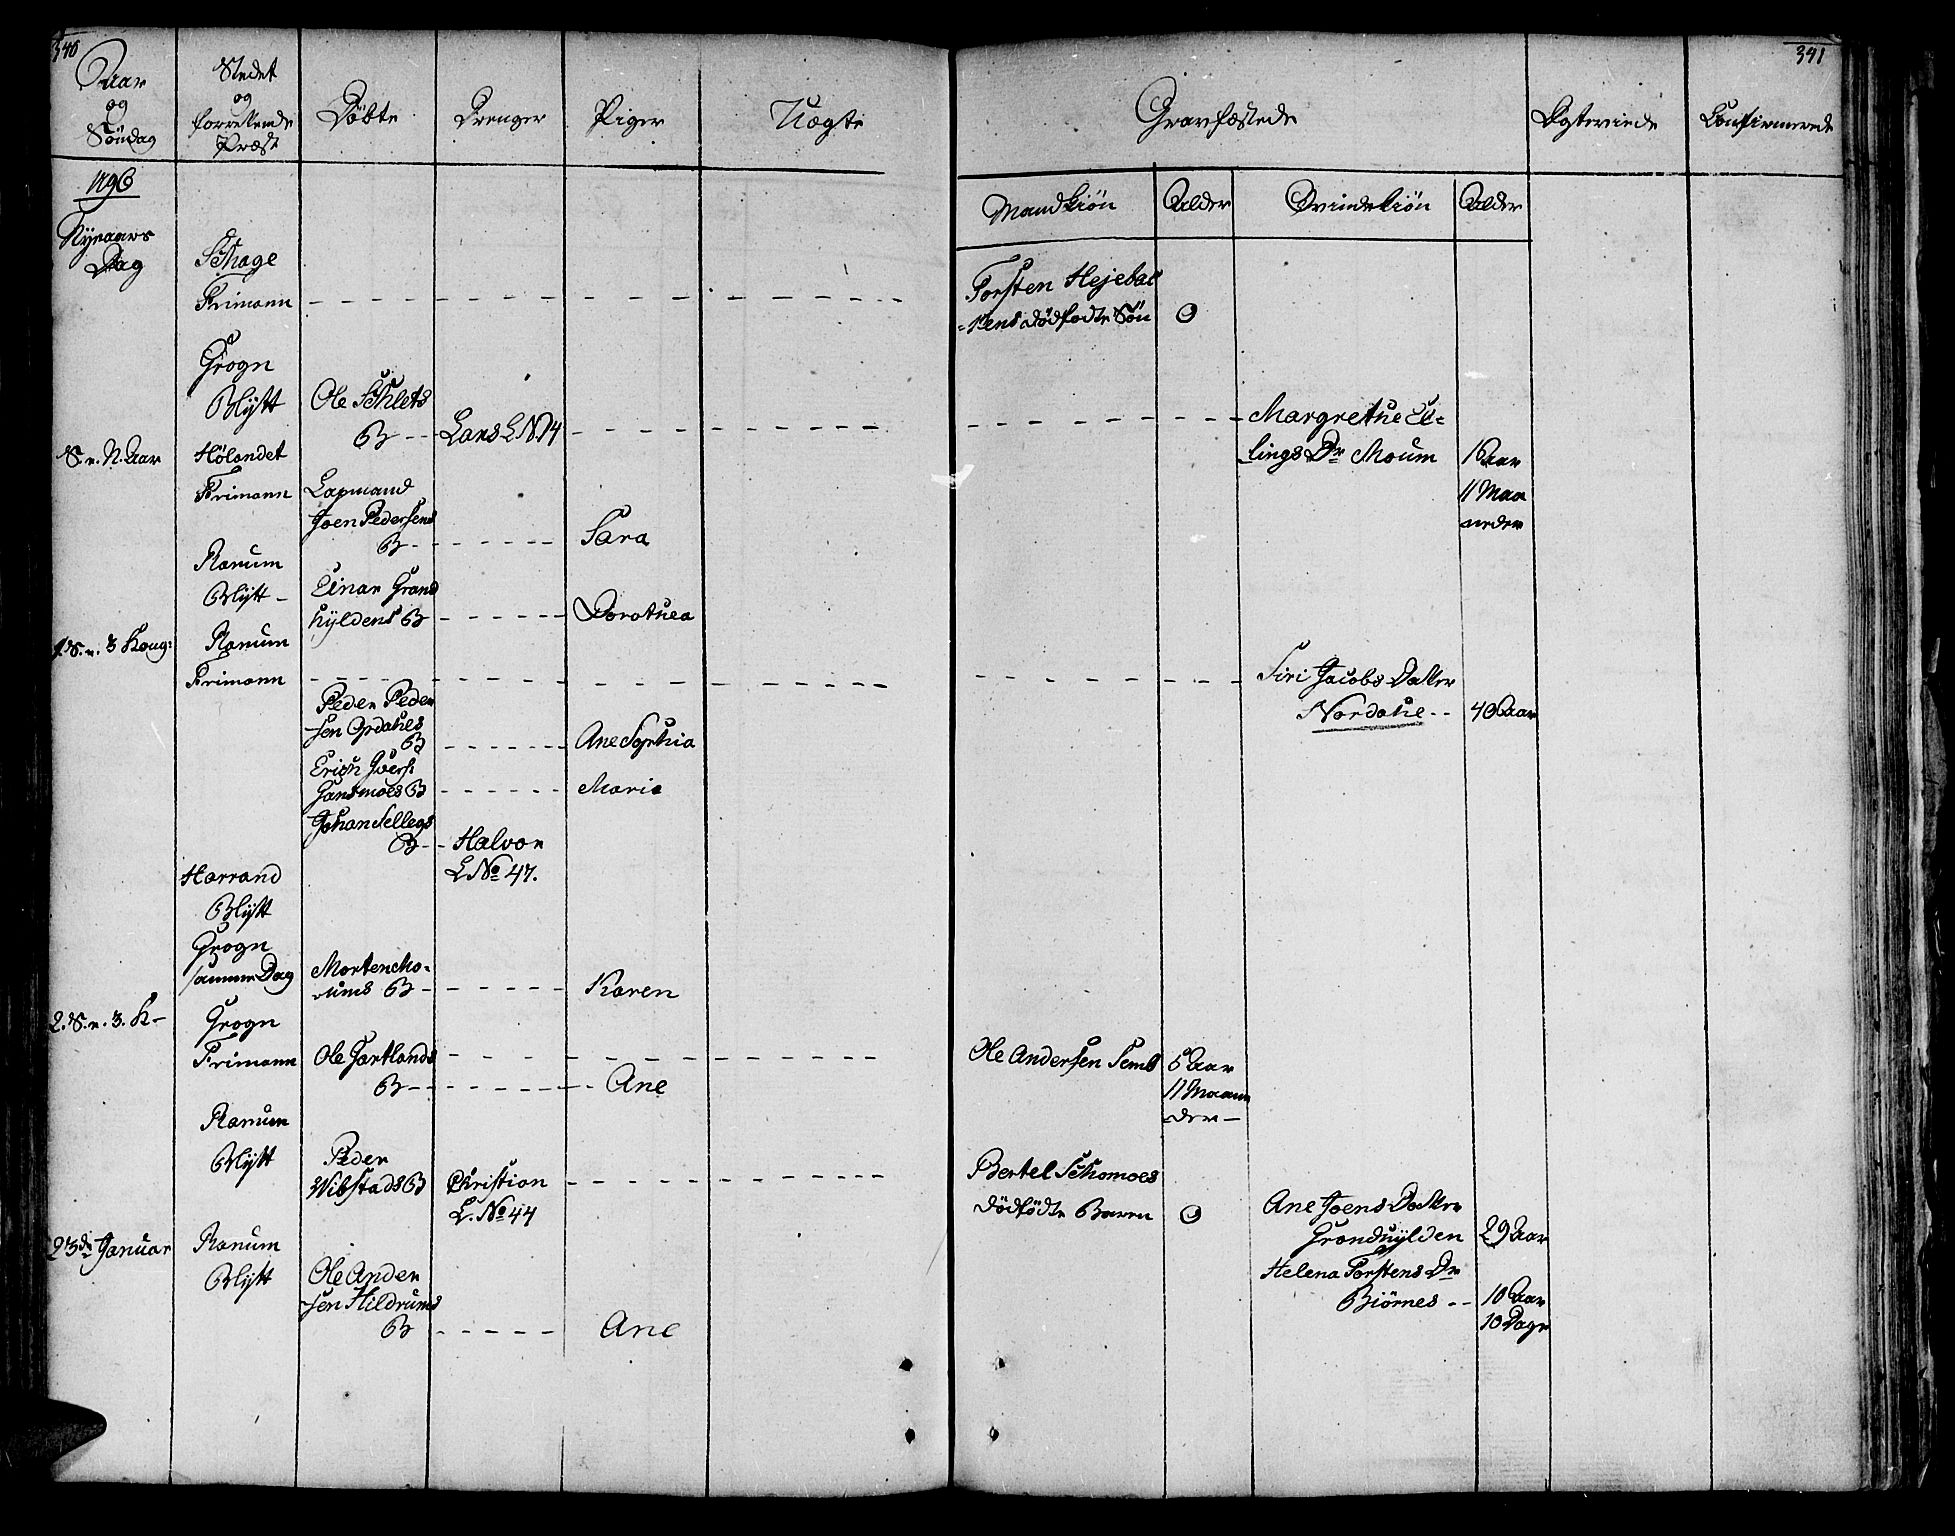 340
Aar
og
Söndag
Stedet
og
forrettende
Præst
Döbte
Drenger
Piger
Uægte
1796
Nÿeaars
Dag
Schage
Frimann
Grogn
Blÿtt
Ole Schlets
B
Lars L No 74
S. n. N. Aar
Hølandet
Frimann
Lapmand
Joen Pedersens
B
Sara
Ranum
Blÿtt
Einar Grand
hÿldens B
Dorothea
1. S. n. 3 Kong:
Ranum
Frimann
Peder Peder
sen Opdahls
B
Ane Sophia
Erich Ivers:
Gansmoes B
Marie
Johan Sellegs
B
Halvor
L No 47.
Harrand
Blÿtt
Grogn
samme Dag
Morten Mo-
ums B
Karen
2. S. n. 3. K
Grogn
Frimann
Ole Gartlands
B
Ane
Ranum
Blÿtt
Peder
Wibstads B
Christian
L. No 44
23de Januar
Ranum
Blÿtt
Ole Ander
sen Hildrums
B
Ane
341
Gravfæstede
Egteviede
Confirmerede
Mandkiön
Alder
Qvindekiön
Alder
Torsten
dödfödte Sön
0
Margrethe El-
lings Dr Moum
1 Aar
11 Maa
neder
Siri Jacobs Datter
Nordahl
40 Aar
Ole Andersen Semb
5 Aar
11 Maane
der
Bertel Schomoes
dödfödte Barn
0
Ane Joens Datter
Grandhÿlden
29 Aar
Helena Torstens Dr
Biörnes
10 Aar
10 Dage